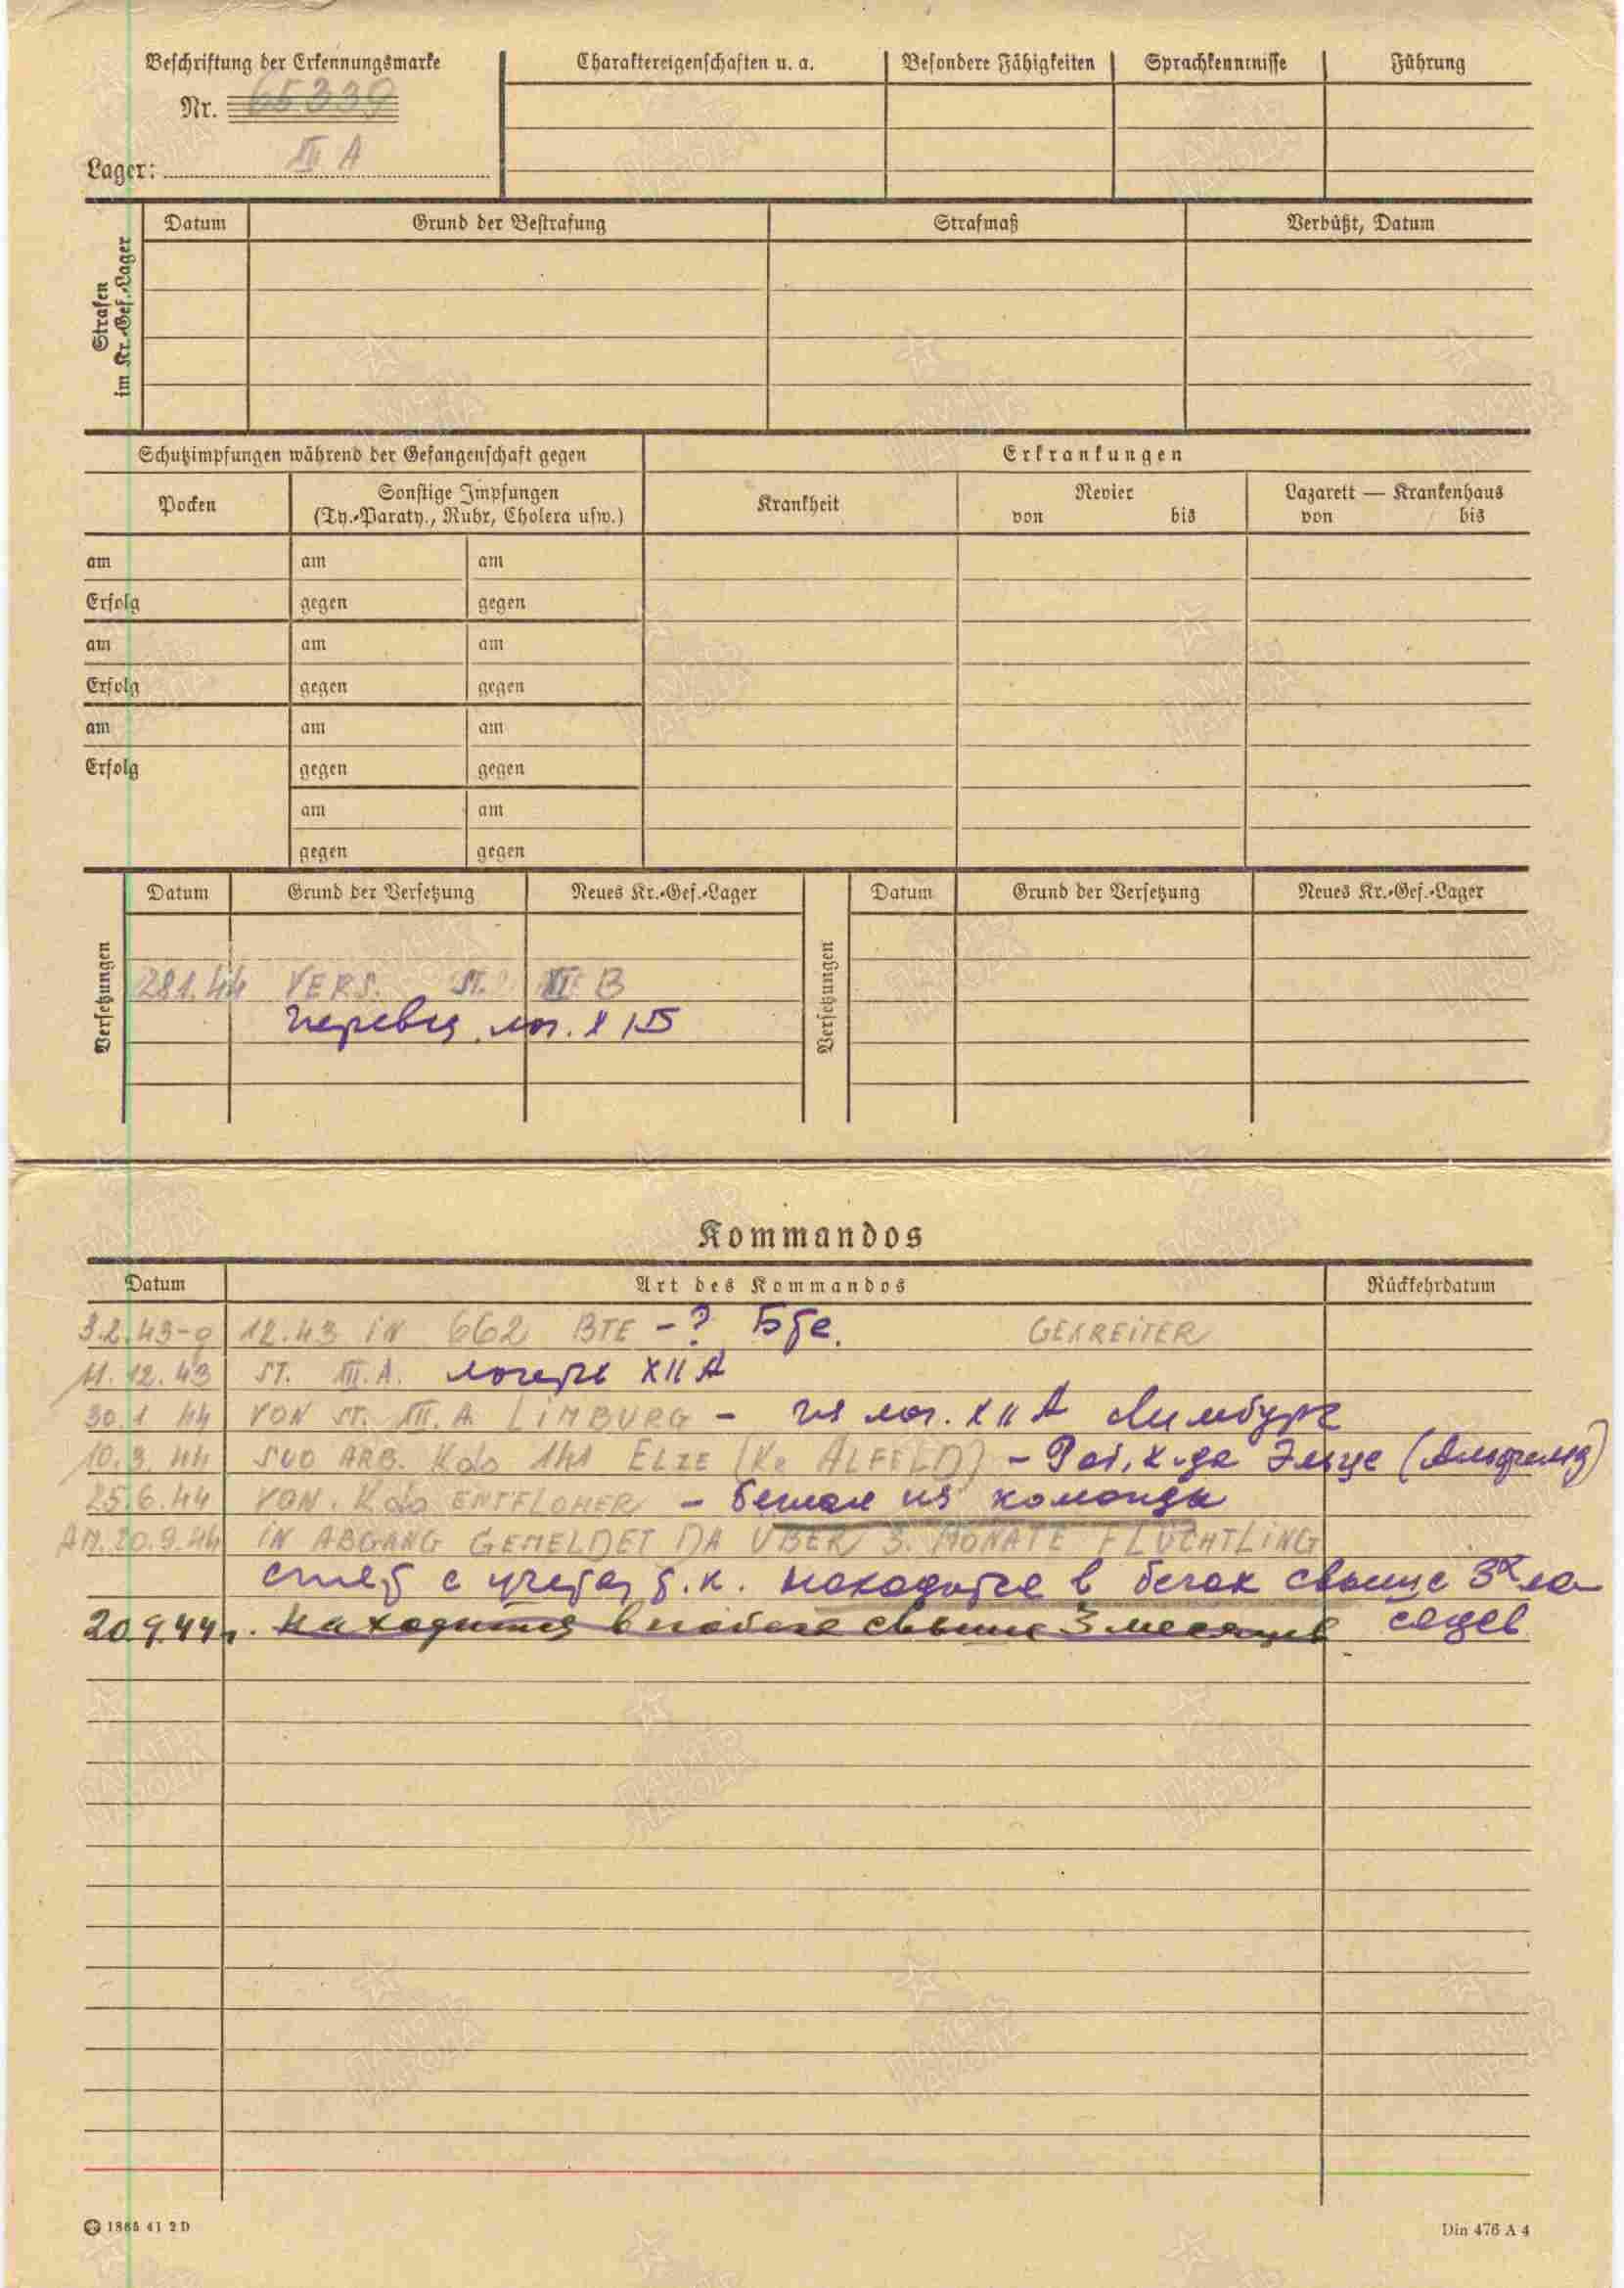 Beschriftung der Erkennungsmarke
Nr. 65339
Lager: III A
Charaktereigenschaften u. a.
Besondere Fähigkeiten
Sprachkenntnisse
Führung
Strafen im Kr.-Gef.-Lager
Datum
Grund der Bestrafung
Strafmaß
Verbüßt, Datum
Schutzimpfungen während der Gefangenschaft gegen
Erkrankungen
Pocken
Sonstige Impfungen
(Ty.-Paraty., Ruhr, Cholera usw.)
Krankheit
Revier
von bis
Lazarett — Krankenhaus
von bis
am am am
Erfolg gegen gegen
am am am
Erfolg gegen gegen
am am am
Erfolg gegen gegen
am am
gegen gegen
Versetzungen
Datum Grund der Versetzung Neues Kr.-Gef.-Lager
28.1.44 VERS. ST. XI B
перевед. лаг. XI Б
Versetzungen
Datum Grund der Versetzung Neues Kr.-Gef.-Lager
Kommandos
Datum Art des Kommandos Rückkehrdatum
3.2.43-9 12.43 IN 662 BTE - ?
11.12.43 ST. III. A. лагерь XII A
30.1 44 VON ST. XII. A. LIMBURG - из лаг. XII A Лимбург
10.3.44 ARB. Kdo 141 ELZE (Kr ALFELD) - Раб. к-да Эльце (Альфельд)
25.6.44 VON. Kdo ENTFLOHEN - бежал из команды
AM. 20.9.44 IN ABGANG GEMELDET DA ÜBER 3. MONATE FLÜCHTLING
снят с учета, т.к. находится в бегах свыше 3х ме-
сяцев
20.9.44г. находится в побеге свыше 3 месяцев
1865 41 2D
Din 476 A 4